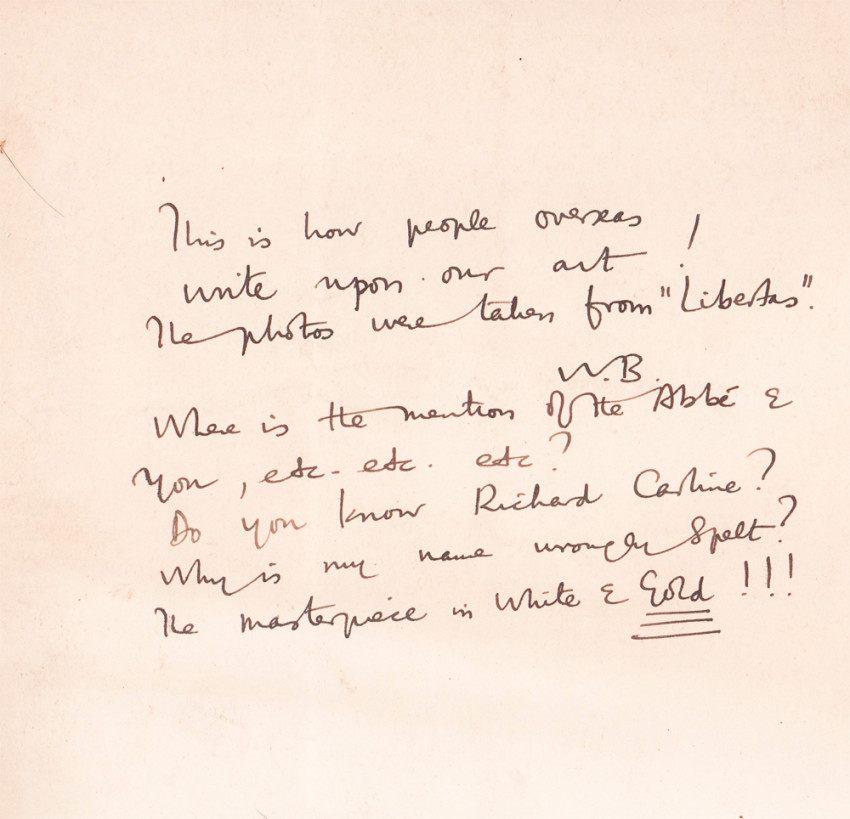 This is how people overseas
write upon our art !
The photos were taken from "Libertas".
W.B.
Where is the mention of the Abbé &
you, etc. etc. etc?
Do you know Richard Carline?
Why is my name wrongly spelt?
The masterpiece in White & Gold !!!